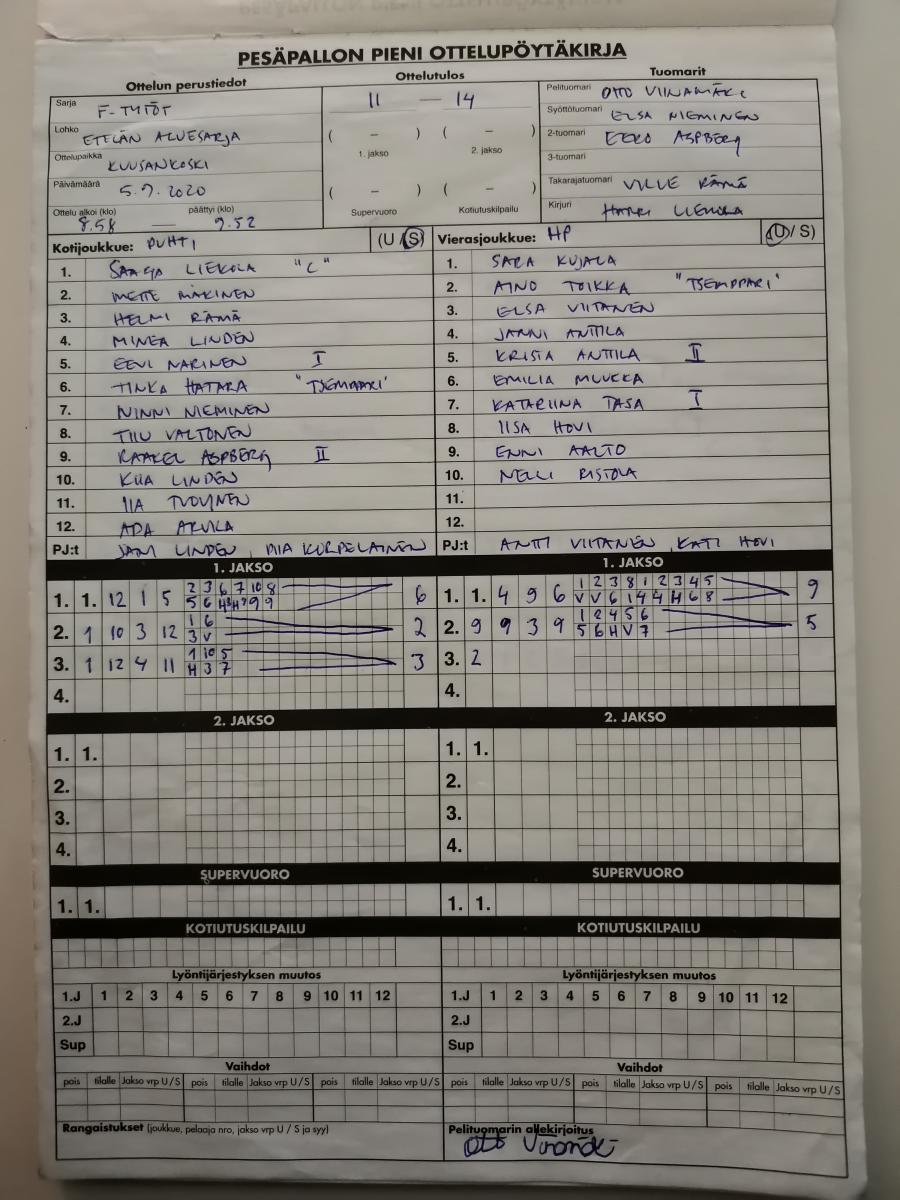 PESÄPALLON PIENI OTTELUPÖYTÄKIRJA
Ottelun perustiedot
Ottelutulos
Tuomarit
Sarja F-TYTÖT
11 — 14
Pelituomari OTTO VIINAMÄKI
Syöttötuomari ELSA NIEMINEN
Lohko ETELÄN ALUESARJA
( – ) ( – )
1. jakso 2. jakso
2-tuomari EERO ASPBERG
Ottelupaikka KUUSANKOSKI
3-tuomari
Päivämäärä 5.9.2020
( – ) ( – )
Takarajatuomari VILLE RÄMÄ
Ottelu alkoi (klo) päättyi (klo)
8.58 — 9.52
Supervuoro Kotiutuskilpailu
Kirjuri HARRI LIEKOLA
Kotijoukkue: PUHTI (U / S)
Vierasjoukkue: HP (U / S)
1. SAAGA LIEKOLA "C"
2. METTE MÄKINEN
3. HELMI RÄMÄ
4. MINEA LINDEN
5. EEVI NARINEN I
6. TINKA HATARA "TSEMPPARI"
7. NINNI NIEMINEN
8. TIIU VALTONEN
9. RAAKEL ASPBERG II
10. KIIA LINDEN
11. IIA TUOVINEN
12. ADA
PJ:t JANI LINDEN, MIA KURPELAINEN
1. SARA KUJALA
2. AINO TOIKKA "TSEMPPARI"
3. ELSA VIITANEN
4. JANNI ANTTILA
5. KRISTA ANTTILA II
6. EMILIA MUUKKA
7. KATARIINA TASA I
8. IISA HOVI
9. ENNI AALTO
10. NELLI RISTOLA
11.
12.
PJ:t ANTTI VIITANEN, KATI HOVI
1. JAKSO
1. 1. 12 1 5 2 3 6 7 10 8 6
5 6 H H 9 9
2. 1 10 3 12 1 6 2
3 V
3. 1 12 4 11 1 10 5 3
H 3 7
4.
1. JAKSO
1. 1. 4 9 6 1 2 3 8 1 2 3 4 5 9
V V 6 1 4 4 H 6 8
2. 9 9 3 9 1 2 4 5 6 5
5 6 H V 7
3. 2
4.
2. JAKSO
1. 1.
2.
3.
4.
2. JAKSO
1. 1.
2.
3.
4.
SUPERVUORO
1. 1.
SUPERVUORO
1. 1.
KOTIUTUSKILPAILU
KOTIUTUSKILPAILU
Lyöntijärjestyksen muutos
1.J 1 2 3 4 5 6 7 8 9 10 11 12
2.J
Sup
Lyöntijärjestyksen muutos
1.J 1 2 3 4 5 6 7 8 9 10 11 12
2.J
Sup
Vaihdot
pois tilalle Jakso vrp U/S pois tilalle Jakso vrp U/S pois tilalle Jakso vrp U/S
Vaihdot
pois tilalle Jakso vrp U/S pois tilalle Jakso vrp U/S pois tilalle Jakso vrp U/S
Rangaistukset (joukkue, pelaaja nro, jakso vrp U / S ja syy)
Pelituomarin allekirjoitus
Otto